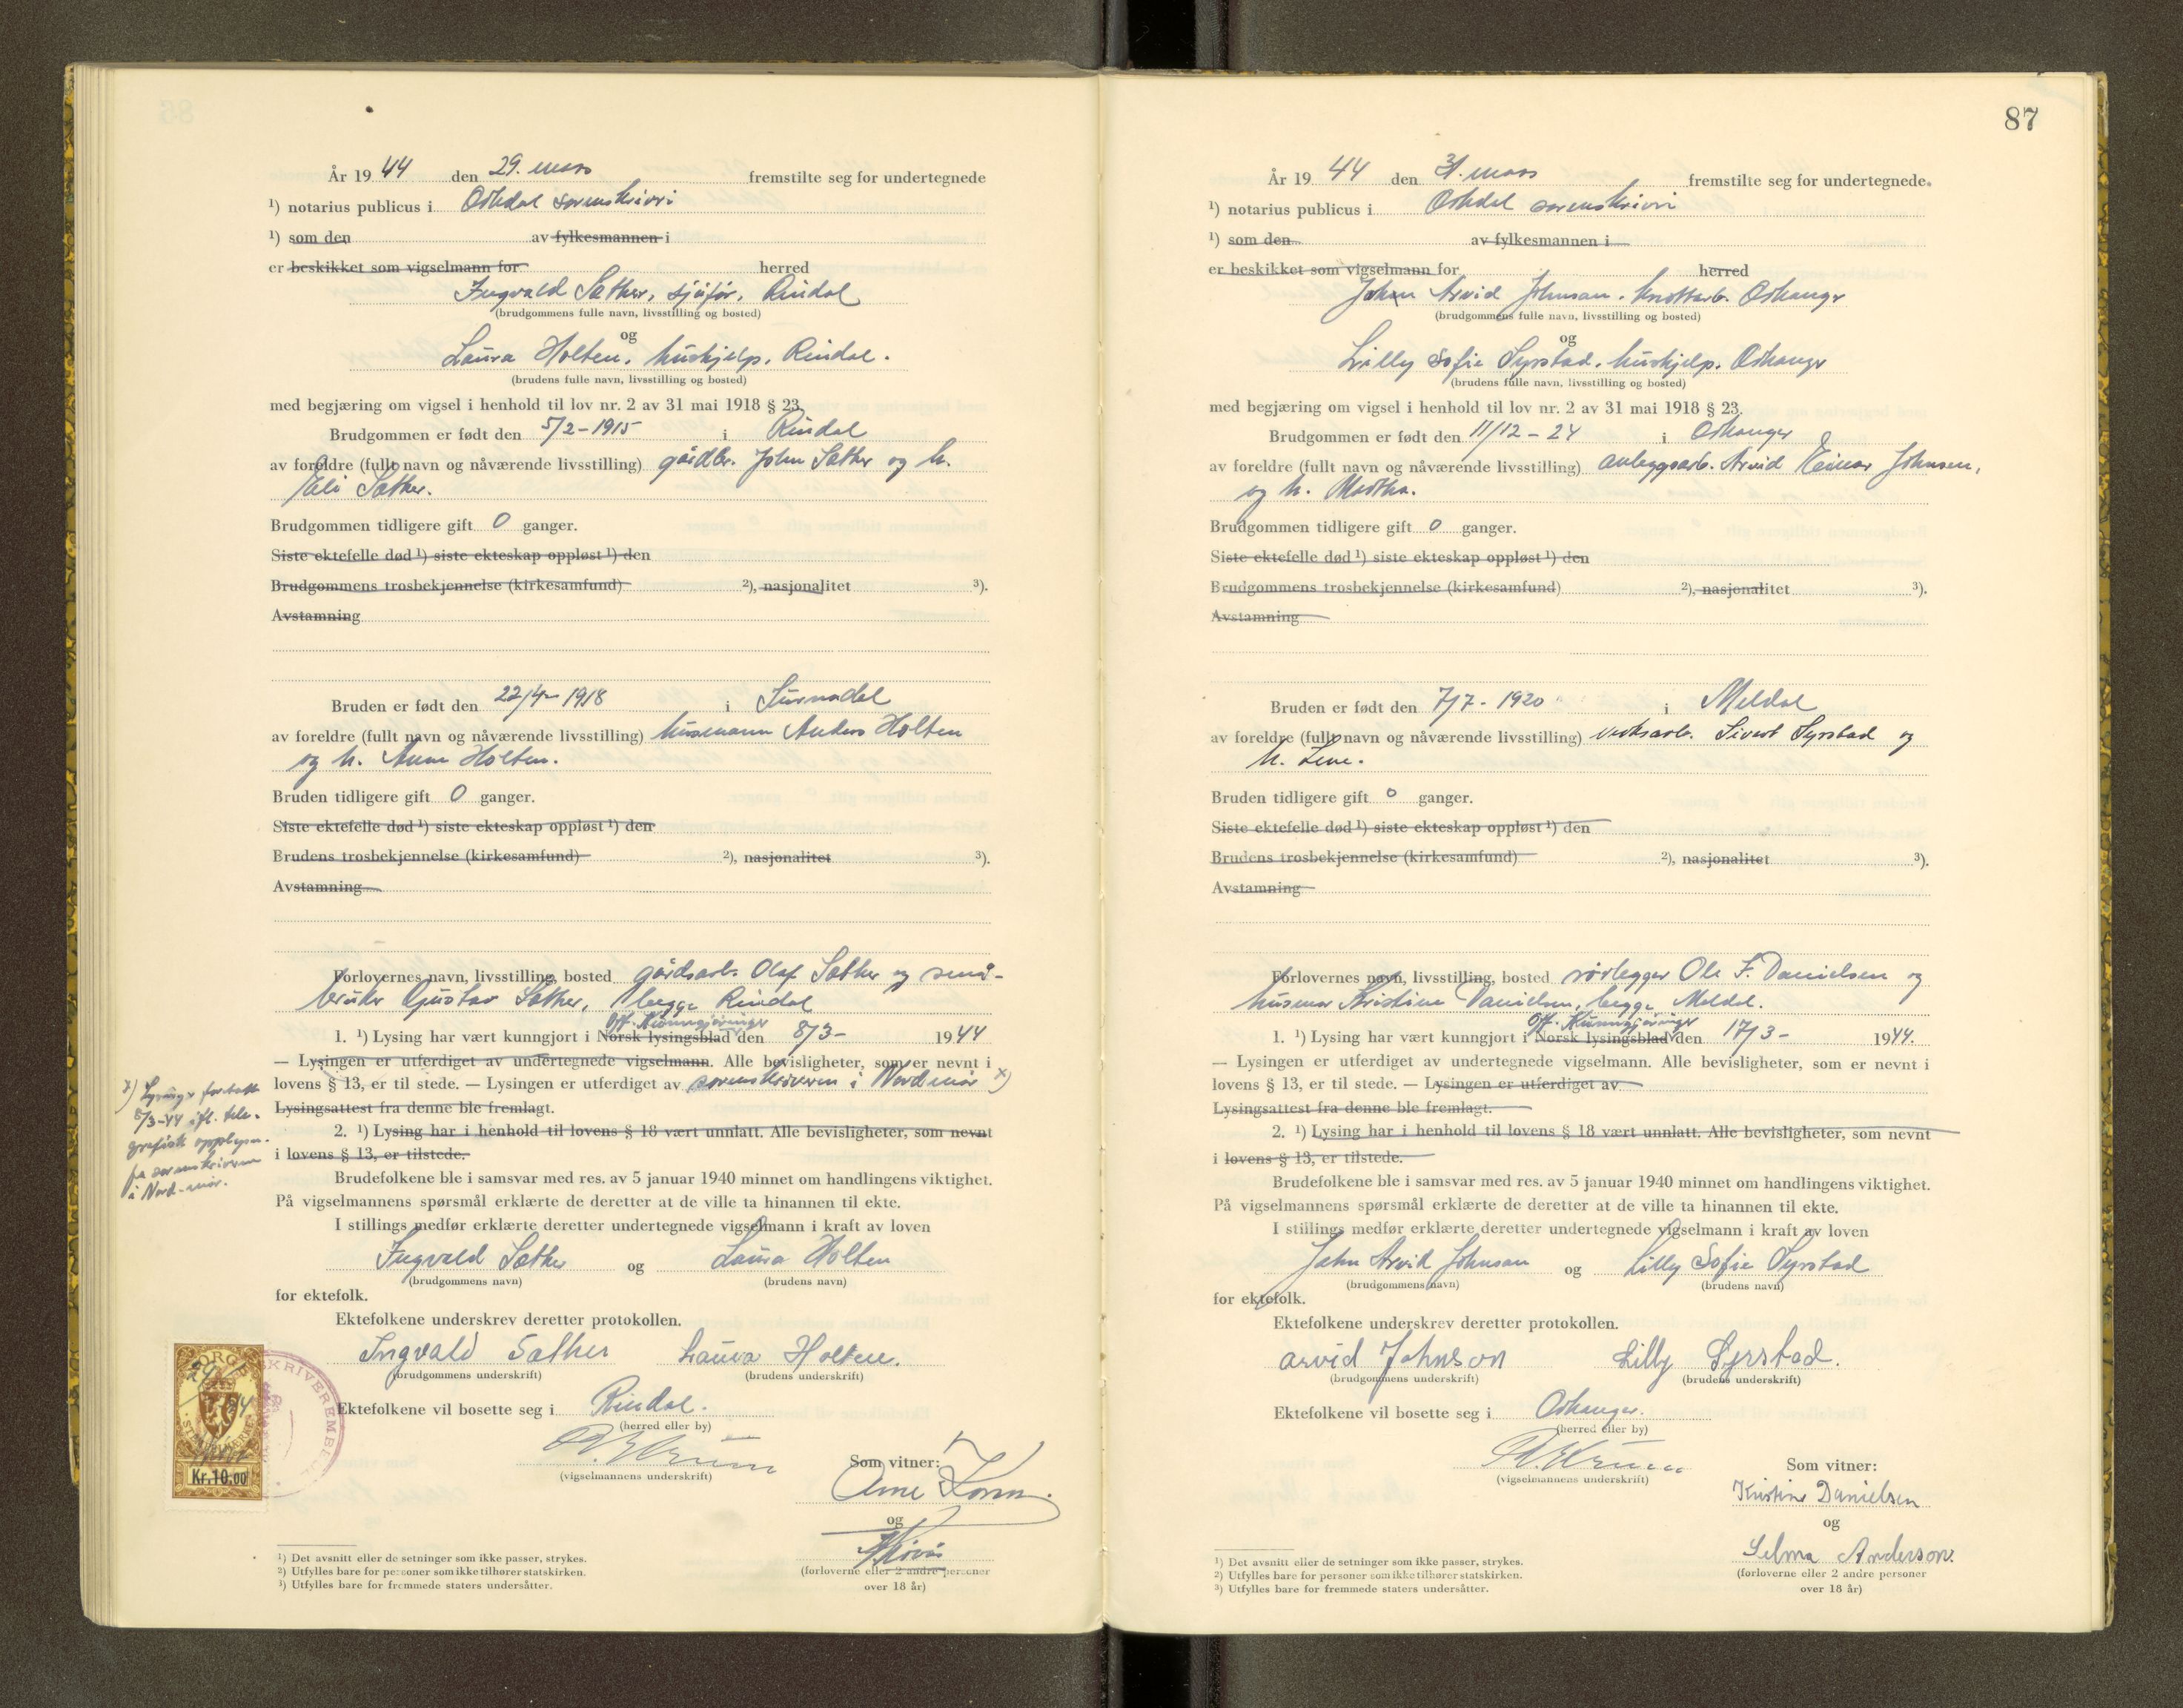 År 19 44 den 29. mars fremstilte seg for undertegnede
¹) notarius publicus i Orkdal sorenskriveri
¹) som den av fylkesmannen i
er beskikket som vigselmann for herred
Ingvald Sæther, sjåfør, Rindal
(brudgommens fulle navn, livsstilling og bosted)
og
Laura Holten, hushjelp, Rindal.
(brudens fulle navn, livsstilling og bosted)
med begjæring om vigsel i henhold til lov nr. 2 av 31 mai 1918 § 23.
Brudgommen er født den 5/2-1915 i Rindal
av foreldre (fullt navn og nåværende livsstilling) gårdbr. John Sæther og h.
Eli Sæther.
Brudgommen tidligere gift 0 ganger.
Siste ektefelle død ¹) siste ekteskap oppløst ¹) den
Brudgommens trosbekjennelse (kirkesamfund) ²), nasjonalitet ³).
Avstamning
Bruden er født den 22/4-1918 i Surnadal
av foreldre (fullt navn og nåværende livsstilling) husmann Anders Holten
og h. Anne Holten.
Bruden tidligere gift 0 ganger.
Siste ektefelle død ¹) siste ekteskap oppløst ¹) den
Brudens trosbekjennelse (kirkesamfund) ²), nasjonalitet ³).
Avstamning
Forlovernes navn, livsstilling, bosted gårdsarb. Olaf Sæther og små-
bruker Gustav Sæther, begge Rindal
Off. Kunngjøringer
1. ¹) Lysing har vært kunngjort i Norsk lysingsblad den 8/3- 1944
— Lysingen er utferdiget av undertegnede vigselmann. Alle bevisligheter, som er nevnt i
lovens § 13, er til stede. — Lysingen er utferdiget av sorenskriveren i Nordmør x)
Lysingsattest fra denne ble fremlagt.
2. ¹) Lysing har i henhold til lovens § 18 vært unnlatt. Alle bevisligheter, som nevnt
i lovens § 13, er tilstede.
x) Lysinge fortatt
8/3-44 ifl. tele-
grafisk opplysn.
fra sorenskriveren
i Nord-mør.
Brudefolkene ble i samsvar med res. av 5 januar 1940 minnet om handlingens viktighet.
På vigselmannens spørsmål erklærte de deretter at de ville ta hinannen til ekte.
I stillings medfør erklærte deretter undertegnede vigselmann i kraft av loven
Ingvald Sæther og Laura Holten
(brudgommens navn) (brudens navn)
for ektefolk.
Ektefolkene underskrev deretter protokollen.
Ingvald Sæther Laura Holten.
(brudgommens underskrift) (brudens underskrift)
Ektefolkene vil bosette seg i Rindal.
(herred eller by)
(vigselmannens underskrift)
Som vitner:
Arne
og
(forloverne eller 2 andre personer
over 18 år)
NORGE
Kr. 10.00
¹) Det avsnitt eller de setninger som ikke passer, strykes.
²) Utfylles bare for personer som ikke tilhører statskirken.
³) Utfylles bare for fremmede staters undersåtter.
87
År 19 44 den 31. mars fremstilte seg for undertegnede
¹) notarius publicus i Orkdal sorenskriveri
¹) som den av fylkesmannen i
er beskikket som vigselmann for herred
John Arvid Johnsen, Orkanger
(brudgommens fulle navn, livsstilling og bosted)
og
Lilly Sofie Syrstad, hushjelp, Orkanger
(brudens fulle navn, livsstilling og bosted)
med begjæring om vigsel i henhold til lov nr. 2 av 31 mai 1918 § 23.
Brudgommen er født den 11/12-24 i Orkanger
av foreldre (fullt navn og nåværende livsstilling) anleggsarb. Arvid Einar Johnsen,
og h. Martha.
Brudgommen tidligere gift 0 ganger.
Siste ektefelle død ¹) siste ekteskap oppløst ¹) den
Brudgommens trosbekjennelse (kirkesamfund) ²), nasjonalitet ³).
Avstamning
Bruden er født den 7/7-1920 i Meldal
av foreldre (fullt navn og nåværende livsstilling) verksarb. Sivert Syrstad og
h. Lene.
Bruden tidligere gift 0 ganger.
Siste ektefelle død ¹) siste ekteskap oppløst ¹) den
Brudens trosbekjennelse (kirkesamfund) ²), nasjonalitet ³).
Avstamning
Forlovernes navn, livsstilling, bosted rørlegger Ole F. Danielsen og
husmor Kristine Danielsen, begge Meldal.
Off. Kunngjøringer
1. ¹) Lysing har vært kunngjort i Norsk lysingsblad den 17/3- 1944.
— Lysingen er utferdiget av undertegnede vigselmann. Alle bevisligheter, som er nevnt i
lovens § 13, er til stede. — Lysingen er utferdiget av
Lysingsattest fra denne ble fremlagt.
2. ¹) Lysing har i henhold til lovens § 18 vært unnlatt. Alle bevisligheter, som nevnt
i lovens § 13, er tilstede.
Brudefolkene ble i samsvar med res. av 5 januar 1940 minnet om handlingens viktighet.
På vigselmannens spørsmål erklærte de deretter at de ville ta hinannen til ekte.
I stillings medfør erklærte deretter undertegnede vigselmann i kraft av loven
John Arvid Johnsen og Lilly Sofie Syrstad
(brudgommens navn) (brudens navn)
for ektefolk.
Ektefolkene underskrev deretter protokollen.
Arvid Johnson Lilly Syrstad.
(brudgommens underskrift) (brudens underskrift)
Ektefolkene vil bosette seg i Orkanger.
(herred eller by)
(vigselmannens underskrift)
Som vitner:
Kristine Danielsen
og
Selma Anderson.
(forloverne eller 2 andre personer
over 18 år)
¹) Det avsnitt eller de setninger som ikke passer, strykes.
²) Utfylles bare for personer som ikke tilhører statskirken.
³) Utfylles bare for fremmede staters undersåtter.